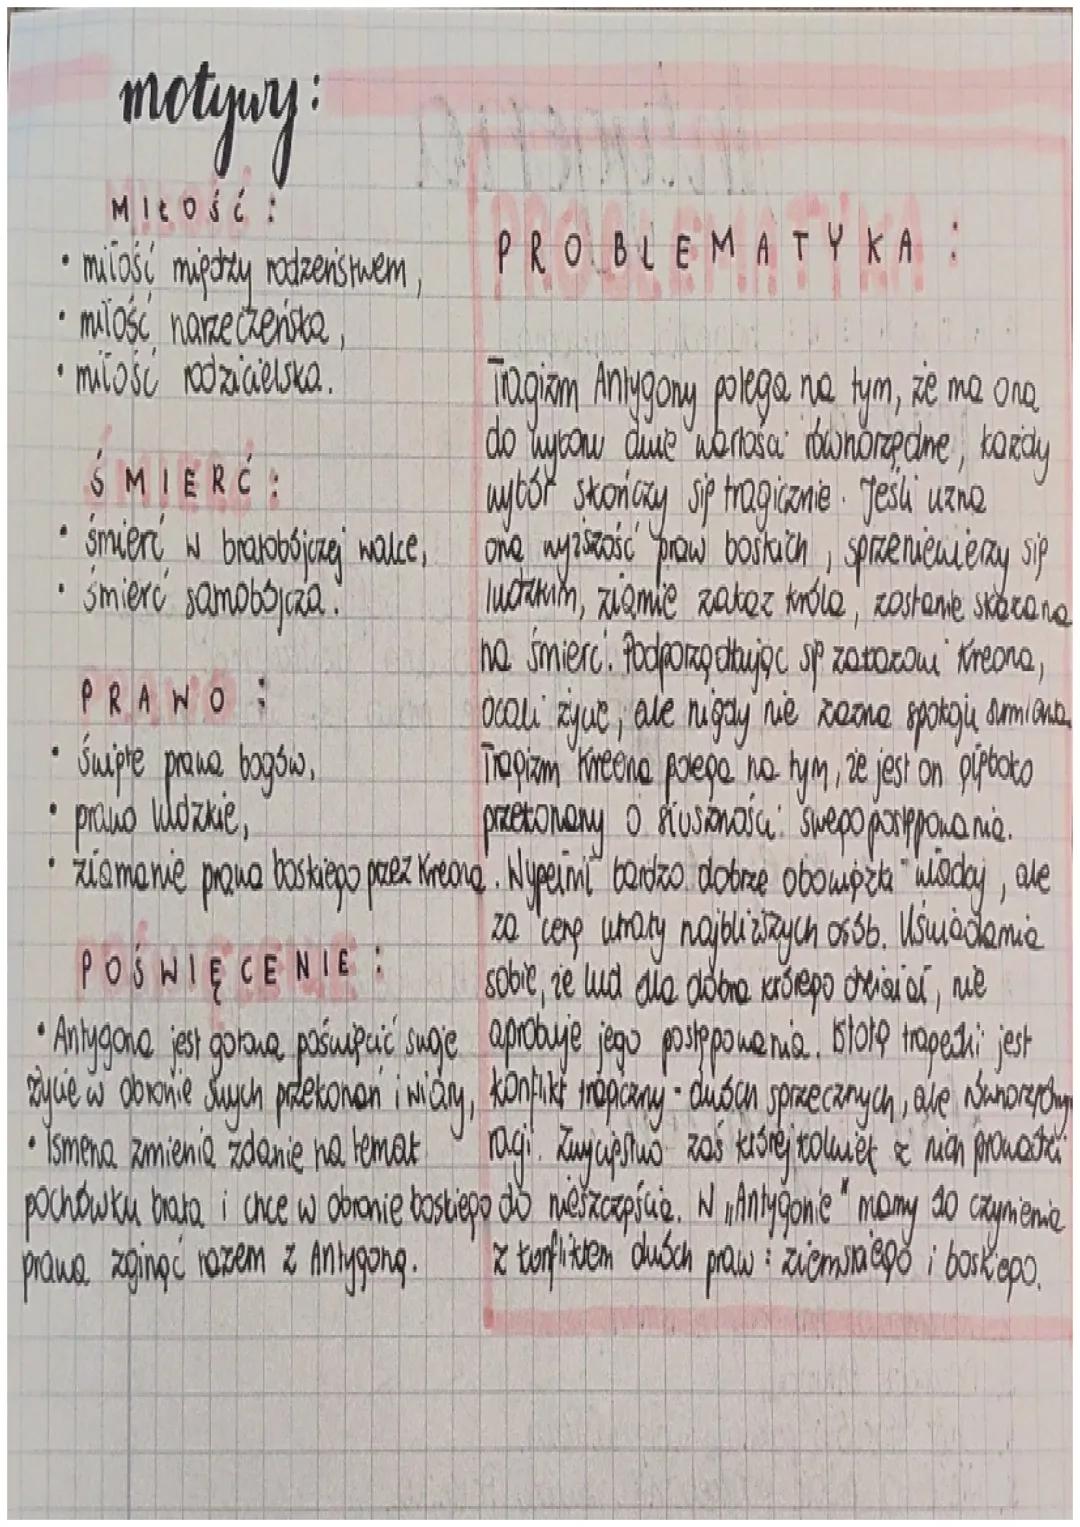 motywy:
MIŁOŚĆ:
• miłość między rodzeństwem,
• miłość narzeczeńska,
• miłość rodzicielska.
ŚMIERĆ:
• śmierć w bratobójczej walce,
• śmierć samobójcza.
PRAWO:
• święte prawa bogów,
• prawo ludzkie,
• złamanie prawa boskiego przez Kreona.
POŚWIĘCENIE:
• Antygona jest gotowa poświęcić swoje
życie w obronie swych przekonań i wiary,
• Ismena zmienia zdanie na temat
pochówku brata i chce w obronie boskiego
prawa zginąć razem z Antygoną.
PROBLEMATYKA:
Tragizm Antygony polega na tym, że ma ona
do wyboru dwie wartości równorzędne, każdy
wybór skończy się tragicznie. Jeśli uzna
ona wyższość praw boskich, sprzeniewierzy się
ludzkim, złamie zakaz króla, zostanie skazana
na śmierć. Podporządkując się zakazowi Kreona,
ocali życie, ale nigdy nie zazna spokoju sumienia.
Tragizm Kreona polega na tym, że jest on głęboko
przekonany o słuszności swego postępowania.
Wypełnił bardzo dobrze obowiązki władcy, ale
za cenę utraty najbliższych osób. Uświadamia
sobie, że lud dla dobra którego działał, nie
aprobuje jego postępowania. Istotą tragedii jest
konflikt tragiczny - dwóch sprzecznych, ale równorzędnych
racji. Zwycięstwo zaś którejkolwiek z nich prowadzi
do nieszczęścia. W „Antygonie" mamy do czynienia
z konfliktem dwóch praw: ziemskiego i boskiego.